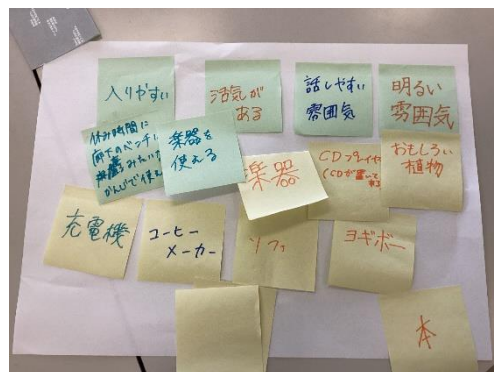 入りやすい
活気が
ある
話しやすい
雰囲気
明るい
雰囲気
休み時間に
廊下のベンチに
みたいな
かんじで使え
楽器を
使える
楽器
CDプレイヤー
(CDが置いて
ある
おもしろい
植物
充電機
コーヒー
メーカー
ソファ
ヨギボー
本